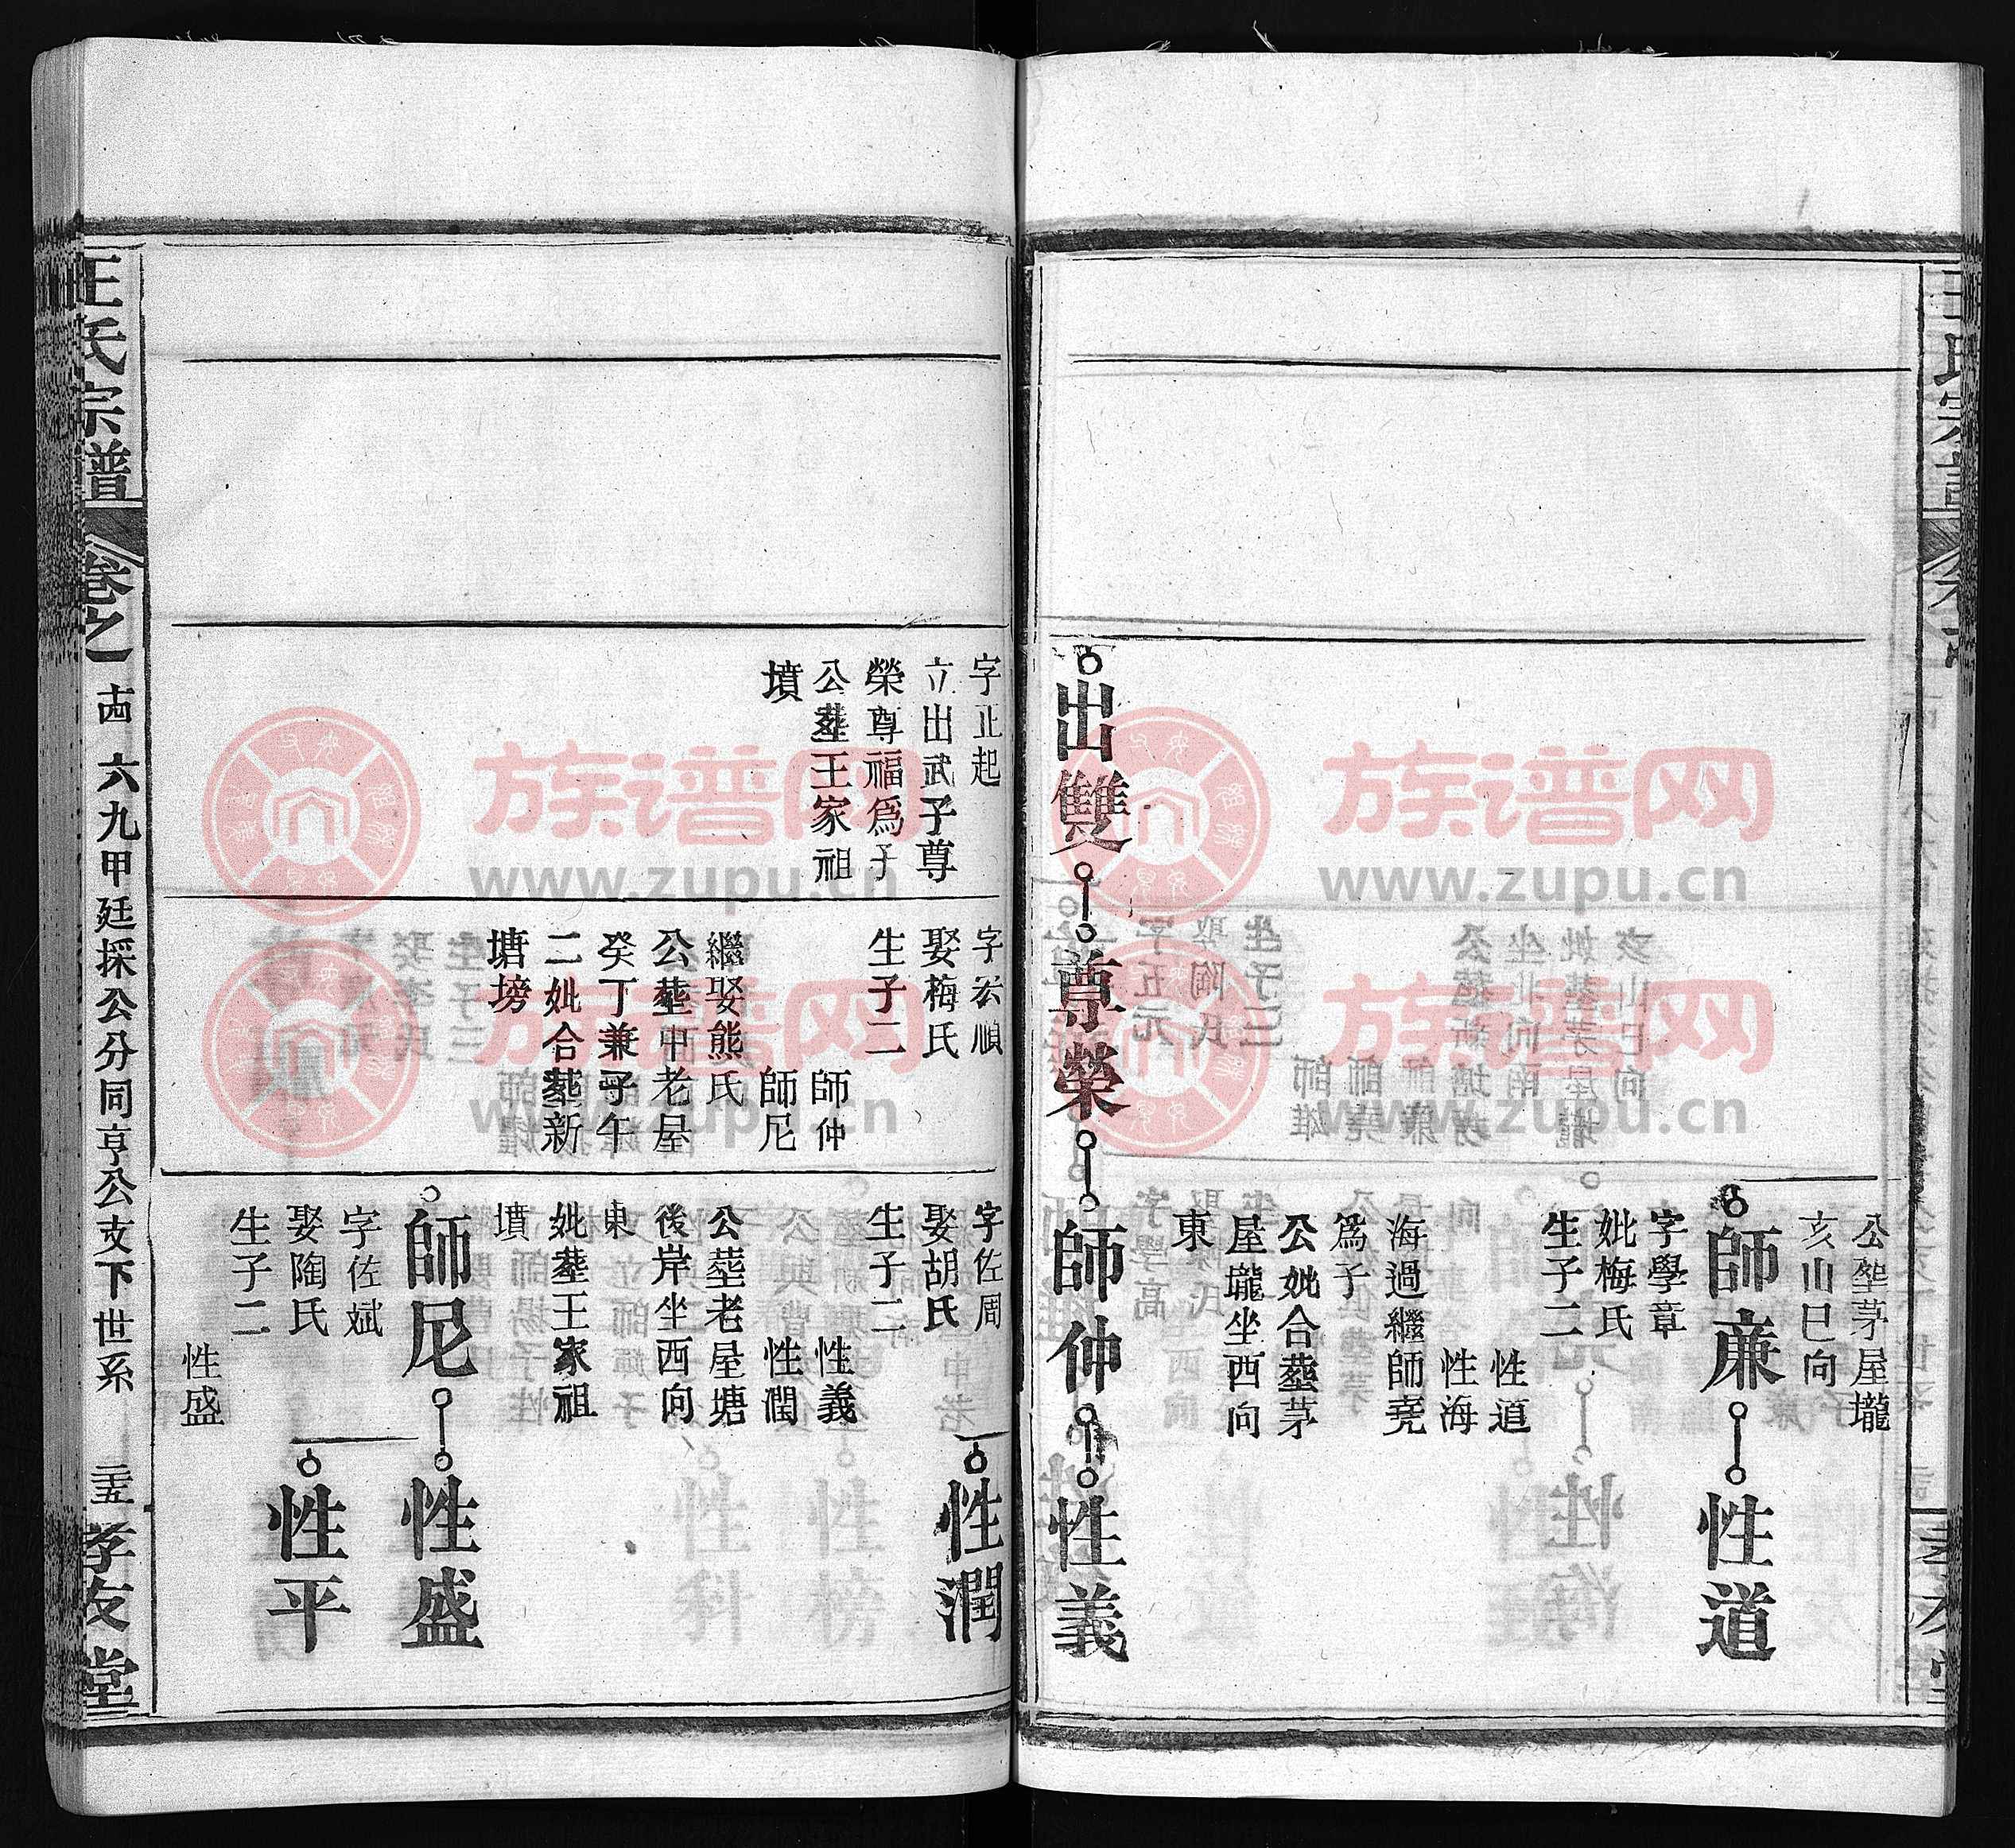 公塟茅屋壠
亥山巳向
師廉
性道
字學章
妣梅氏
生子二
性道
性海
海過繼師堯
爲子
公妣合塟茅
屋壠坐西向
東
出雙
尊榮
師仲
性義
字正起
立出武子尊
榮尊福爲子
公塟王家祖
墳
字宏順
娶梅氏
生子二
師仲
師尼
繼娶熊氏
公塟甲老屋
癸丁兼子午
二妣合塟新
塘塝
字佐周
娶胡氏
生子二
性義
性潤
公塟老屋塘
後岸坐西向
東
妣塟王家祖
墳
性潤
師尼
性盛
字佐斌
娶陶氏
生子二
性盛
性平
王氏宗譜
卷之一
六九甲廷採公分同亨公支下世系
孝友堂
族谱网
www.zupu.cn
族谱网
www.zupu.cn
族谱网
www.zupu.cn
族谱网
www.zupu.cn